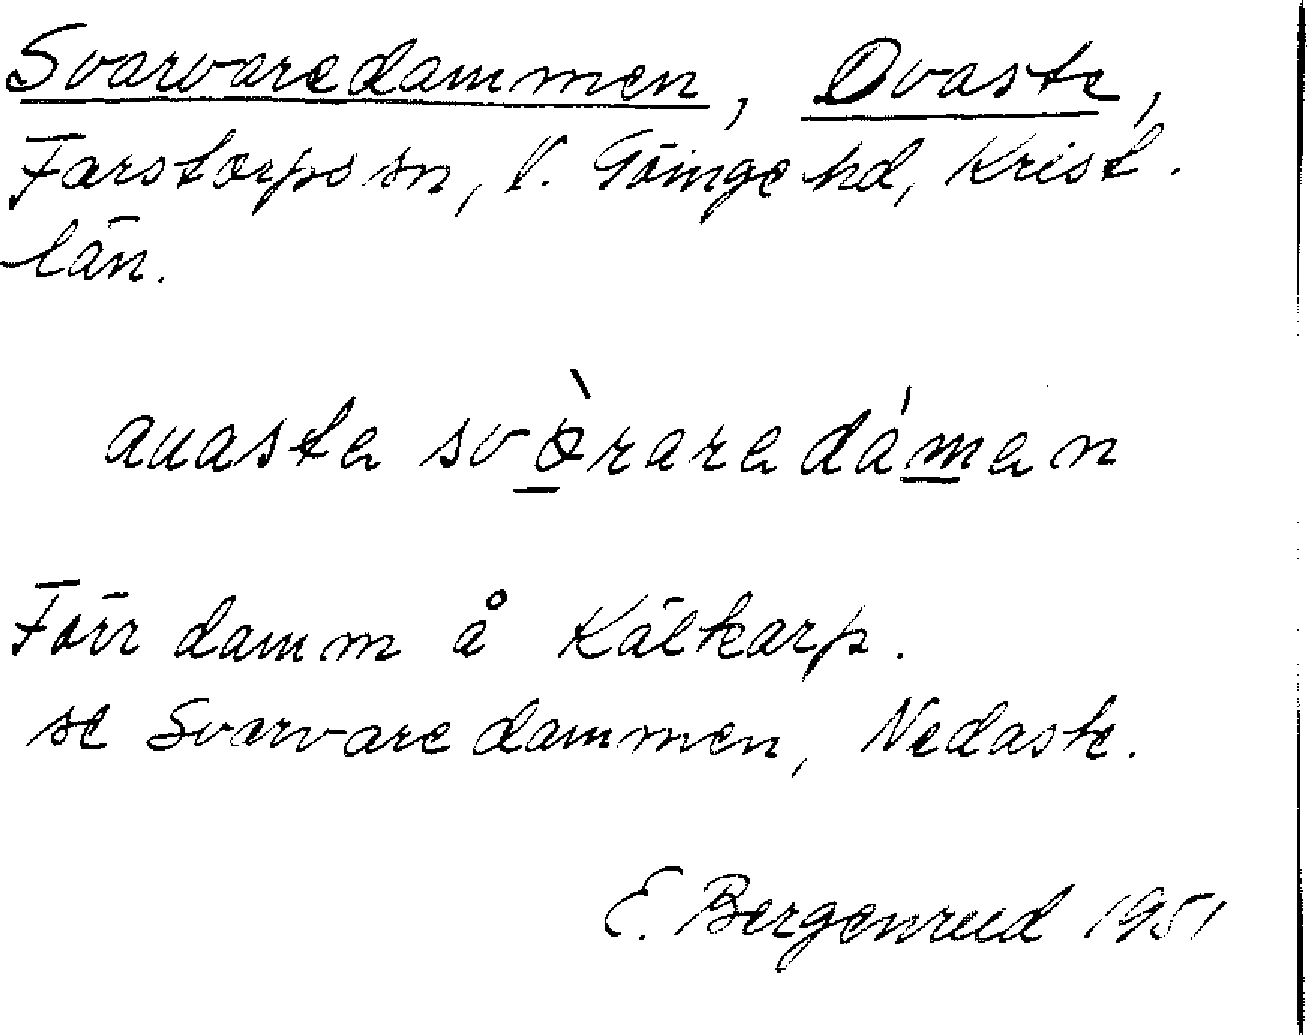 Svarvaredammen, Ovaste,
Farstorps sn, V. Göinge hd, Krist.
län.
Förr damm å Kältkarp.
se Svarvaredammen, Nedaste.
E. Bergenrud 1951